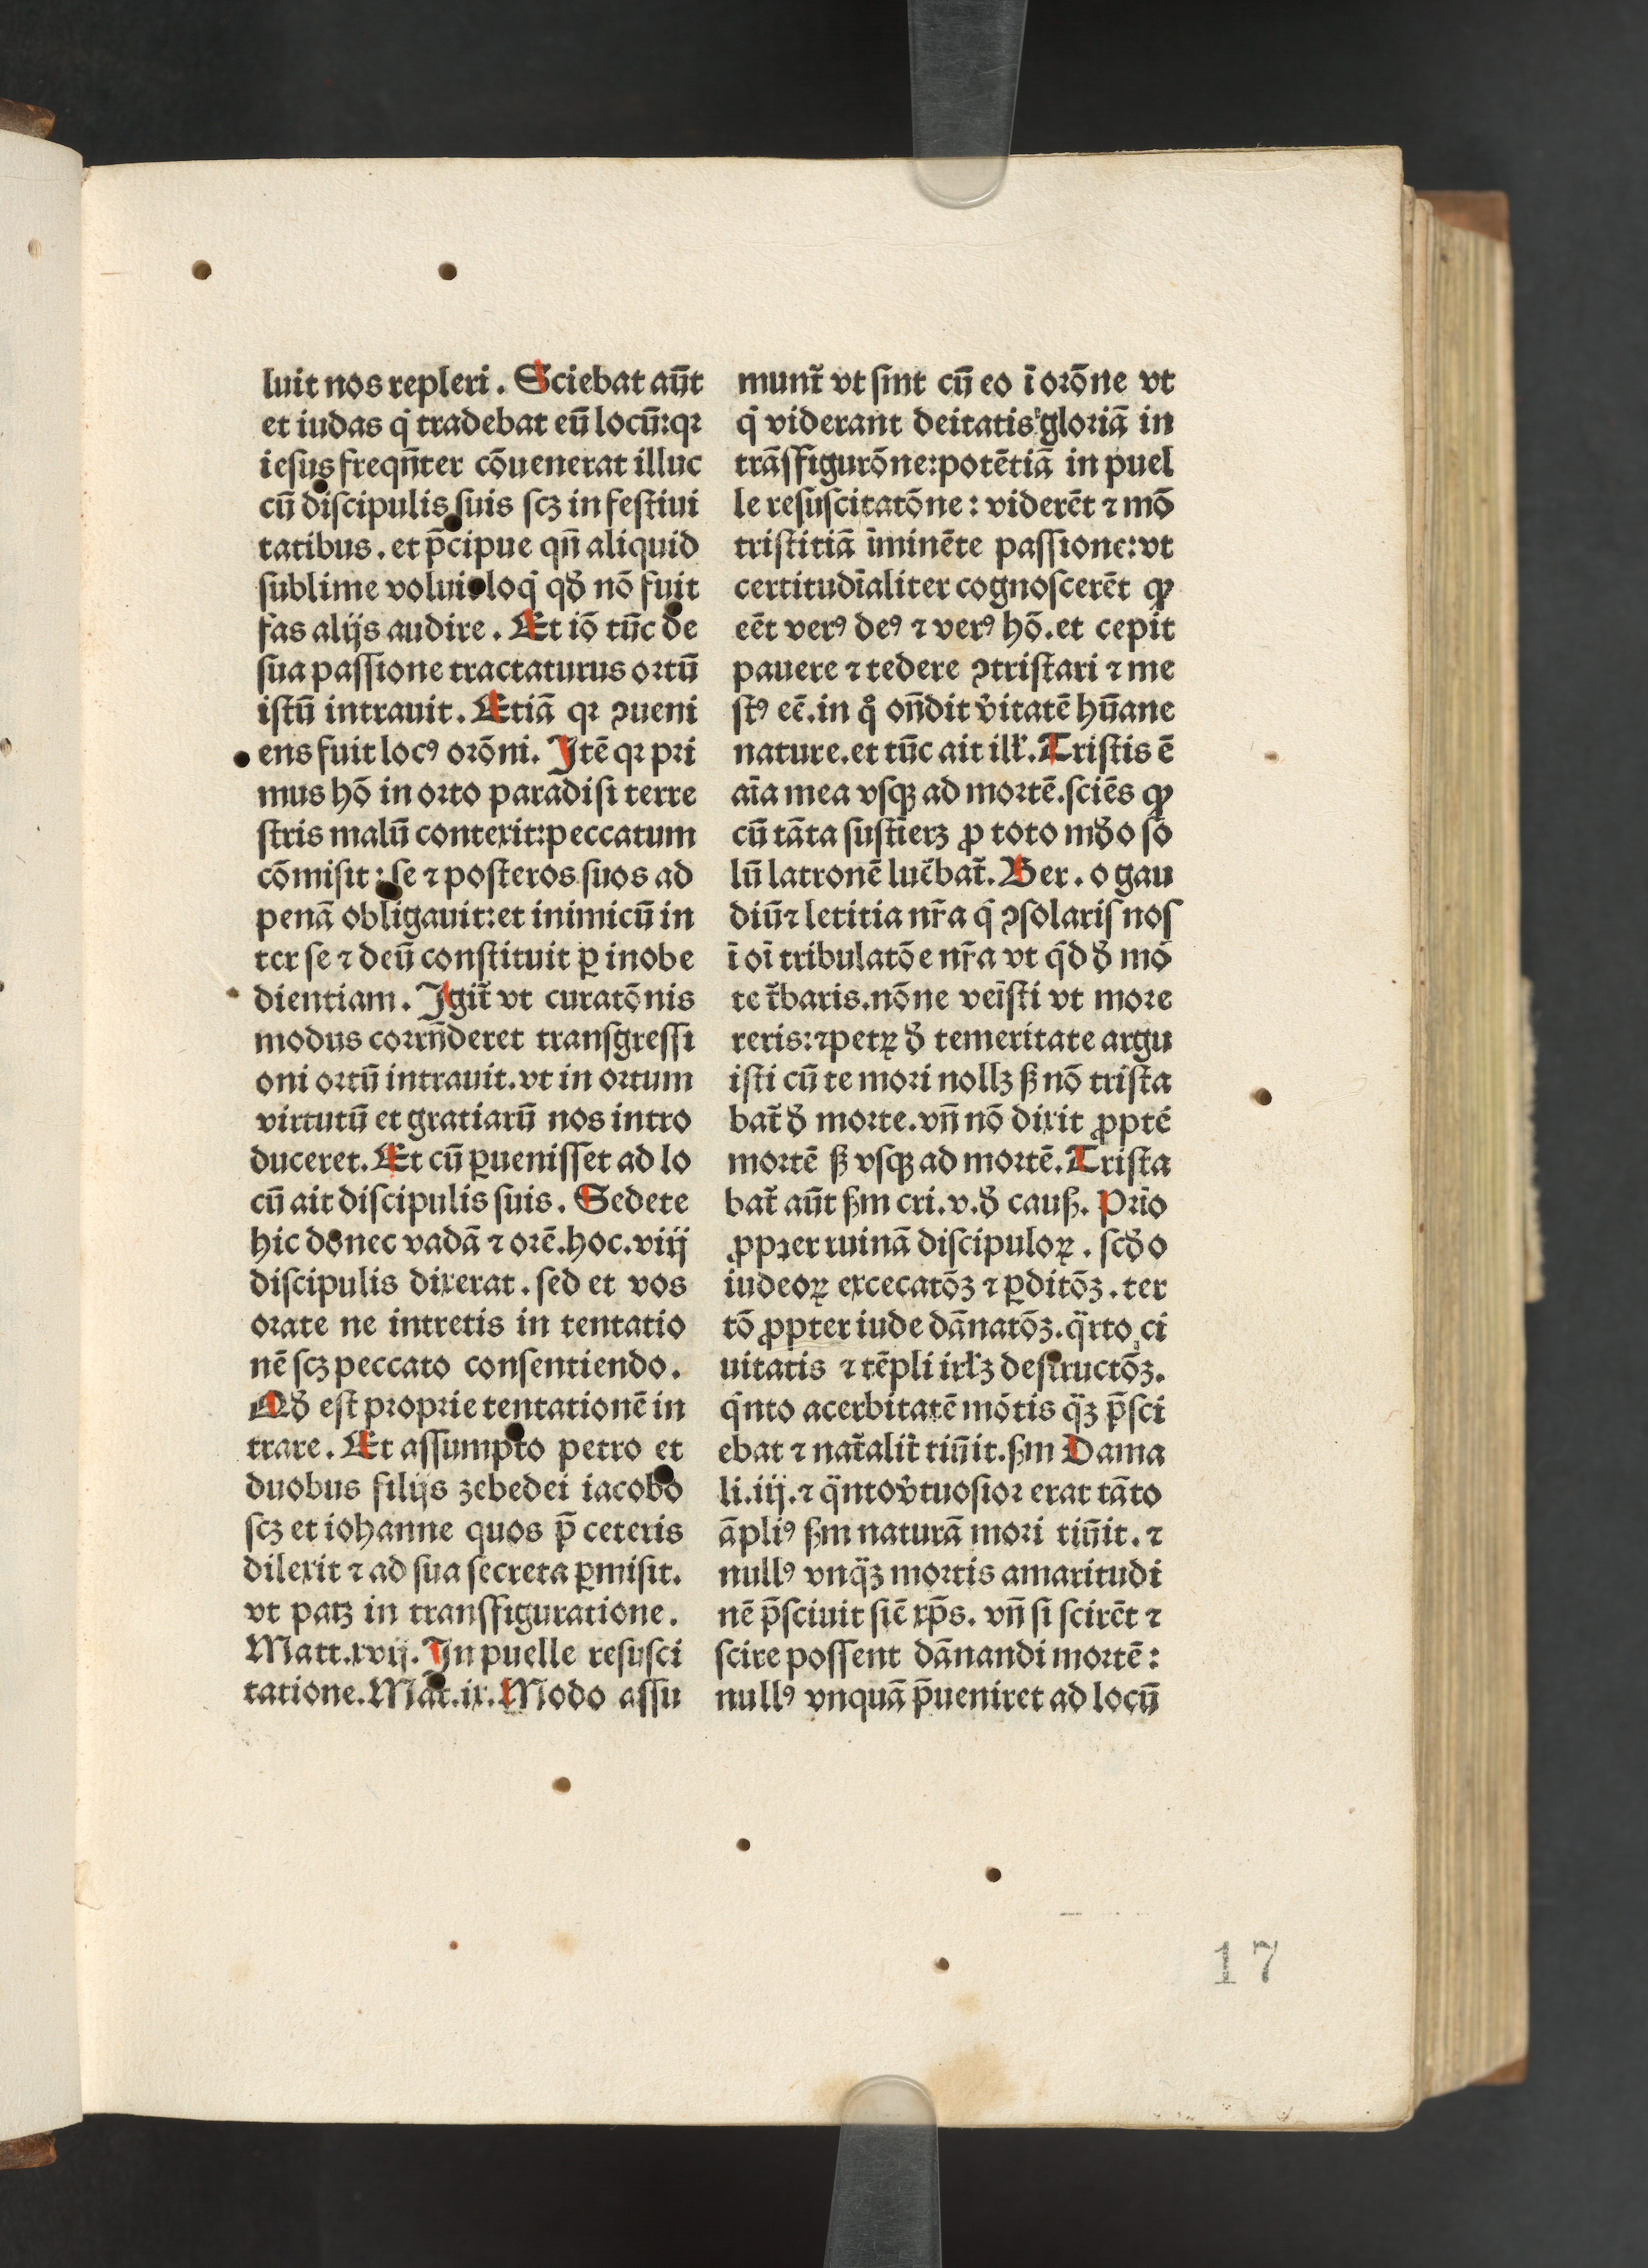 luit nos repleri. Sciebat aūt
et iudas q̇ tradebat eū locū: qꝛ
iesus freqn̄ter cōuenerat illuc
cū discipulis suis scꝫ in festiui
tatibus. et p̄cipue qn̄ aliquid
sublime voluit loq̇ qď nō fuit
fas alijs audire. Et iō tūc de
sua paſſione tractaturus oꝛtū
istū intrauit. Etiā qꝛ ꝯueni
ens fuit locꝰ oꝛōni. Itē qꝛ pꝛi
mus hō in oꝛto paradisi terre
ſtris malū conterit: peccatum
cōmisit: ſe ⁊ poſteros suos ad
penā obligauit: et inimicū in
ter ſe ⁊ deū conſtituit ꝑ inobe
dientiam. Igit̄ vt curatōnis
modus coꝛrn̄deret tranſgreſſi
oni oꝛtū intrauit. vt in oꝛtum
virtutū et gratiarū nos intro
duceret. Et cū ꝑueniſſet ad lo
cū ait diſcipulis suis. Sedete
hic donec vadā ⁊ oꝛē. hoc. viij
diſcipulis dixerat. ſed et vos
oꝛate ne intretis in tentatio
nē ſcꝫ peccato conſentiendo.
Qď eſt pꝛopꝛie tentationē in
trare. Et aſſumpto petro et
duobus filijs zebedei iacobo
ſcꝫ et iohanne quos p̄ ceteris
dilexit ⁊ ad ſua ſecreta ꝑmiſit.
vt patꝫ in tranſfiguratione.
Matt. xvij. In puelle reſuſci
tatione. Mat. ix. Modo aſſu
munt̄ vt ſint cū eo ī oꝛōne vt
q̇ viderant deitatis gloꝛiā in
trāſfigurōne: potētiā in puel
le reſuſcitatōne: viderēt ⁊ mō
triſtitiā īminēte paſſione: vt
certitudīaliter cognoſcerēt ꝙ
eēt verꝰ deꝰ ⁊ verꝰ hō. et cepit
pauere ⁊ tedere ꝯtriſtari ⁊ me
ſtꝰ eē. in qͦ on̄dit v̇itatē hūane
nature. et tūc ait ill'. Triſtis ē
aīa mea vſqꝫ ad moꝛtē. ſciēs ꝙ
cū tāta ſuſtīerꝫ ꝓ toto mďo ſo
lū latronē luc̄bat̄. Ber. o gau
diū ⁊ letitia nr̄a q̄ ꝯſolaris nos
ī oī tribulatōe nr̄a vt q̇d ď mō
te t̄baris. nōne veīſti vt moꝛe
reris: ⁊ petrꝫ ď temeritate argu
iſti cū te moꝛi nollꝫ ß nō triſta
bat̄ ď moꝛte. vn̄ nō dixit ꝓpté
moꝛtē ß vſqꝫ ad moꝛtē. Triſta
bat̄ aūt ßm cri. v. ď cauß. Pꝛīo
ꝓpter ruinā diſcipuloꝝ. ſcďo
iudeoꝝ excecatōꝫ ⁊ ꝑditōꝫ. ter
tō ꝓpter iude dānatōꝫ. q̈rto ci
uitatis ⁊ tēpli irl'ꝫ deſtructōꝫ.
q̇nto acerbitatē mōtis q̈ꝫ p̄ſci
ebat ⁊ nat̄alit̄ tiūit. ßm Dama
li. iij. ⁊ q̈nto v̇tuoſioꝛ erat tāto
āpliꝰ ßm naturā moꝛi tiūit. ⁊
nullꝰ vnq̈ꝫ moꝛtis amaritudi
nē p̄ſciuit ſic̄ xp̄s. vn̄ ſi ſcirēt ⁊
ſcire poſſent dānandi moꝛtē:
nullꝰ vnquā p̄ueniret ad locū
17